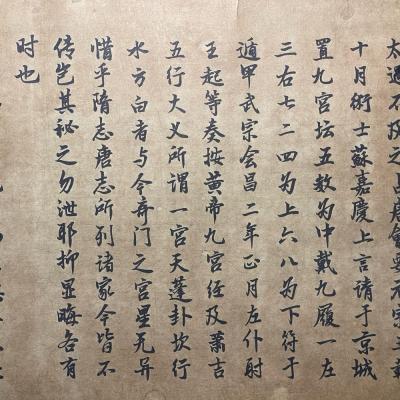 太過不及之占唐會要元宗三載
十月術士蘇嘉慶上言請于京城
置九宫坛五数为中戴九履一左
三右七二四为上六八为下符于
遁甲武宗会昌二年正月左仆射
王起等奏按黄帝九宫经及萧吉
五行大义所谓一宫天蓬卦坎行
水方白者与今奇门之宫星无异
惜乎隋志唐志所列诸家今皆不
传岂其秘之勿泄耶抑显晦各有
时也